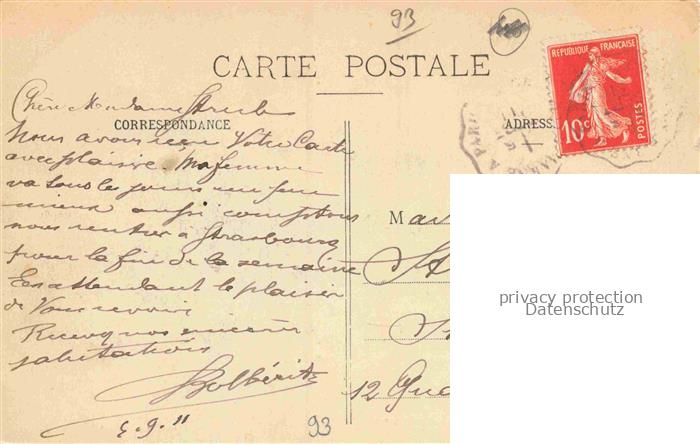 93
CARTE POSTALE
REPUBLIQUE FRANÇAISE
10c POSTES
CORRESPONDANCE
ADRESS
Chère Madame Streib
Nous avons reçu Votre Carte
avec plaisir. Ma femme
va tous les jours un peu
mieux aussi comptons
nous rentrer à Strasbourg
pour la fin de la semaine
En attendant le plaisir
de Vous revoir
Recevez nos sincères
salutations
6.9.11
93
Ma
12 Qua
privacy protection
Datenschutz